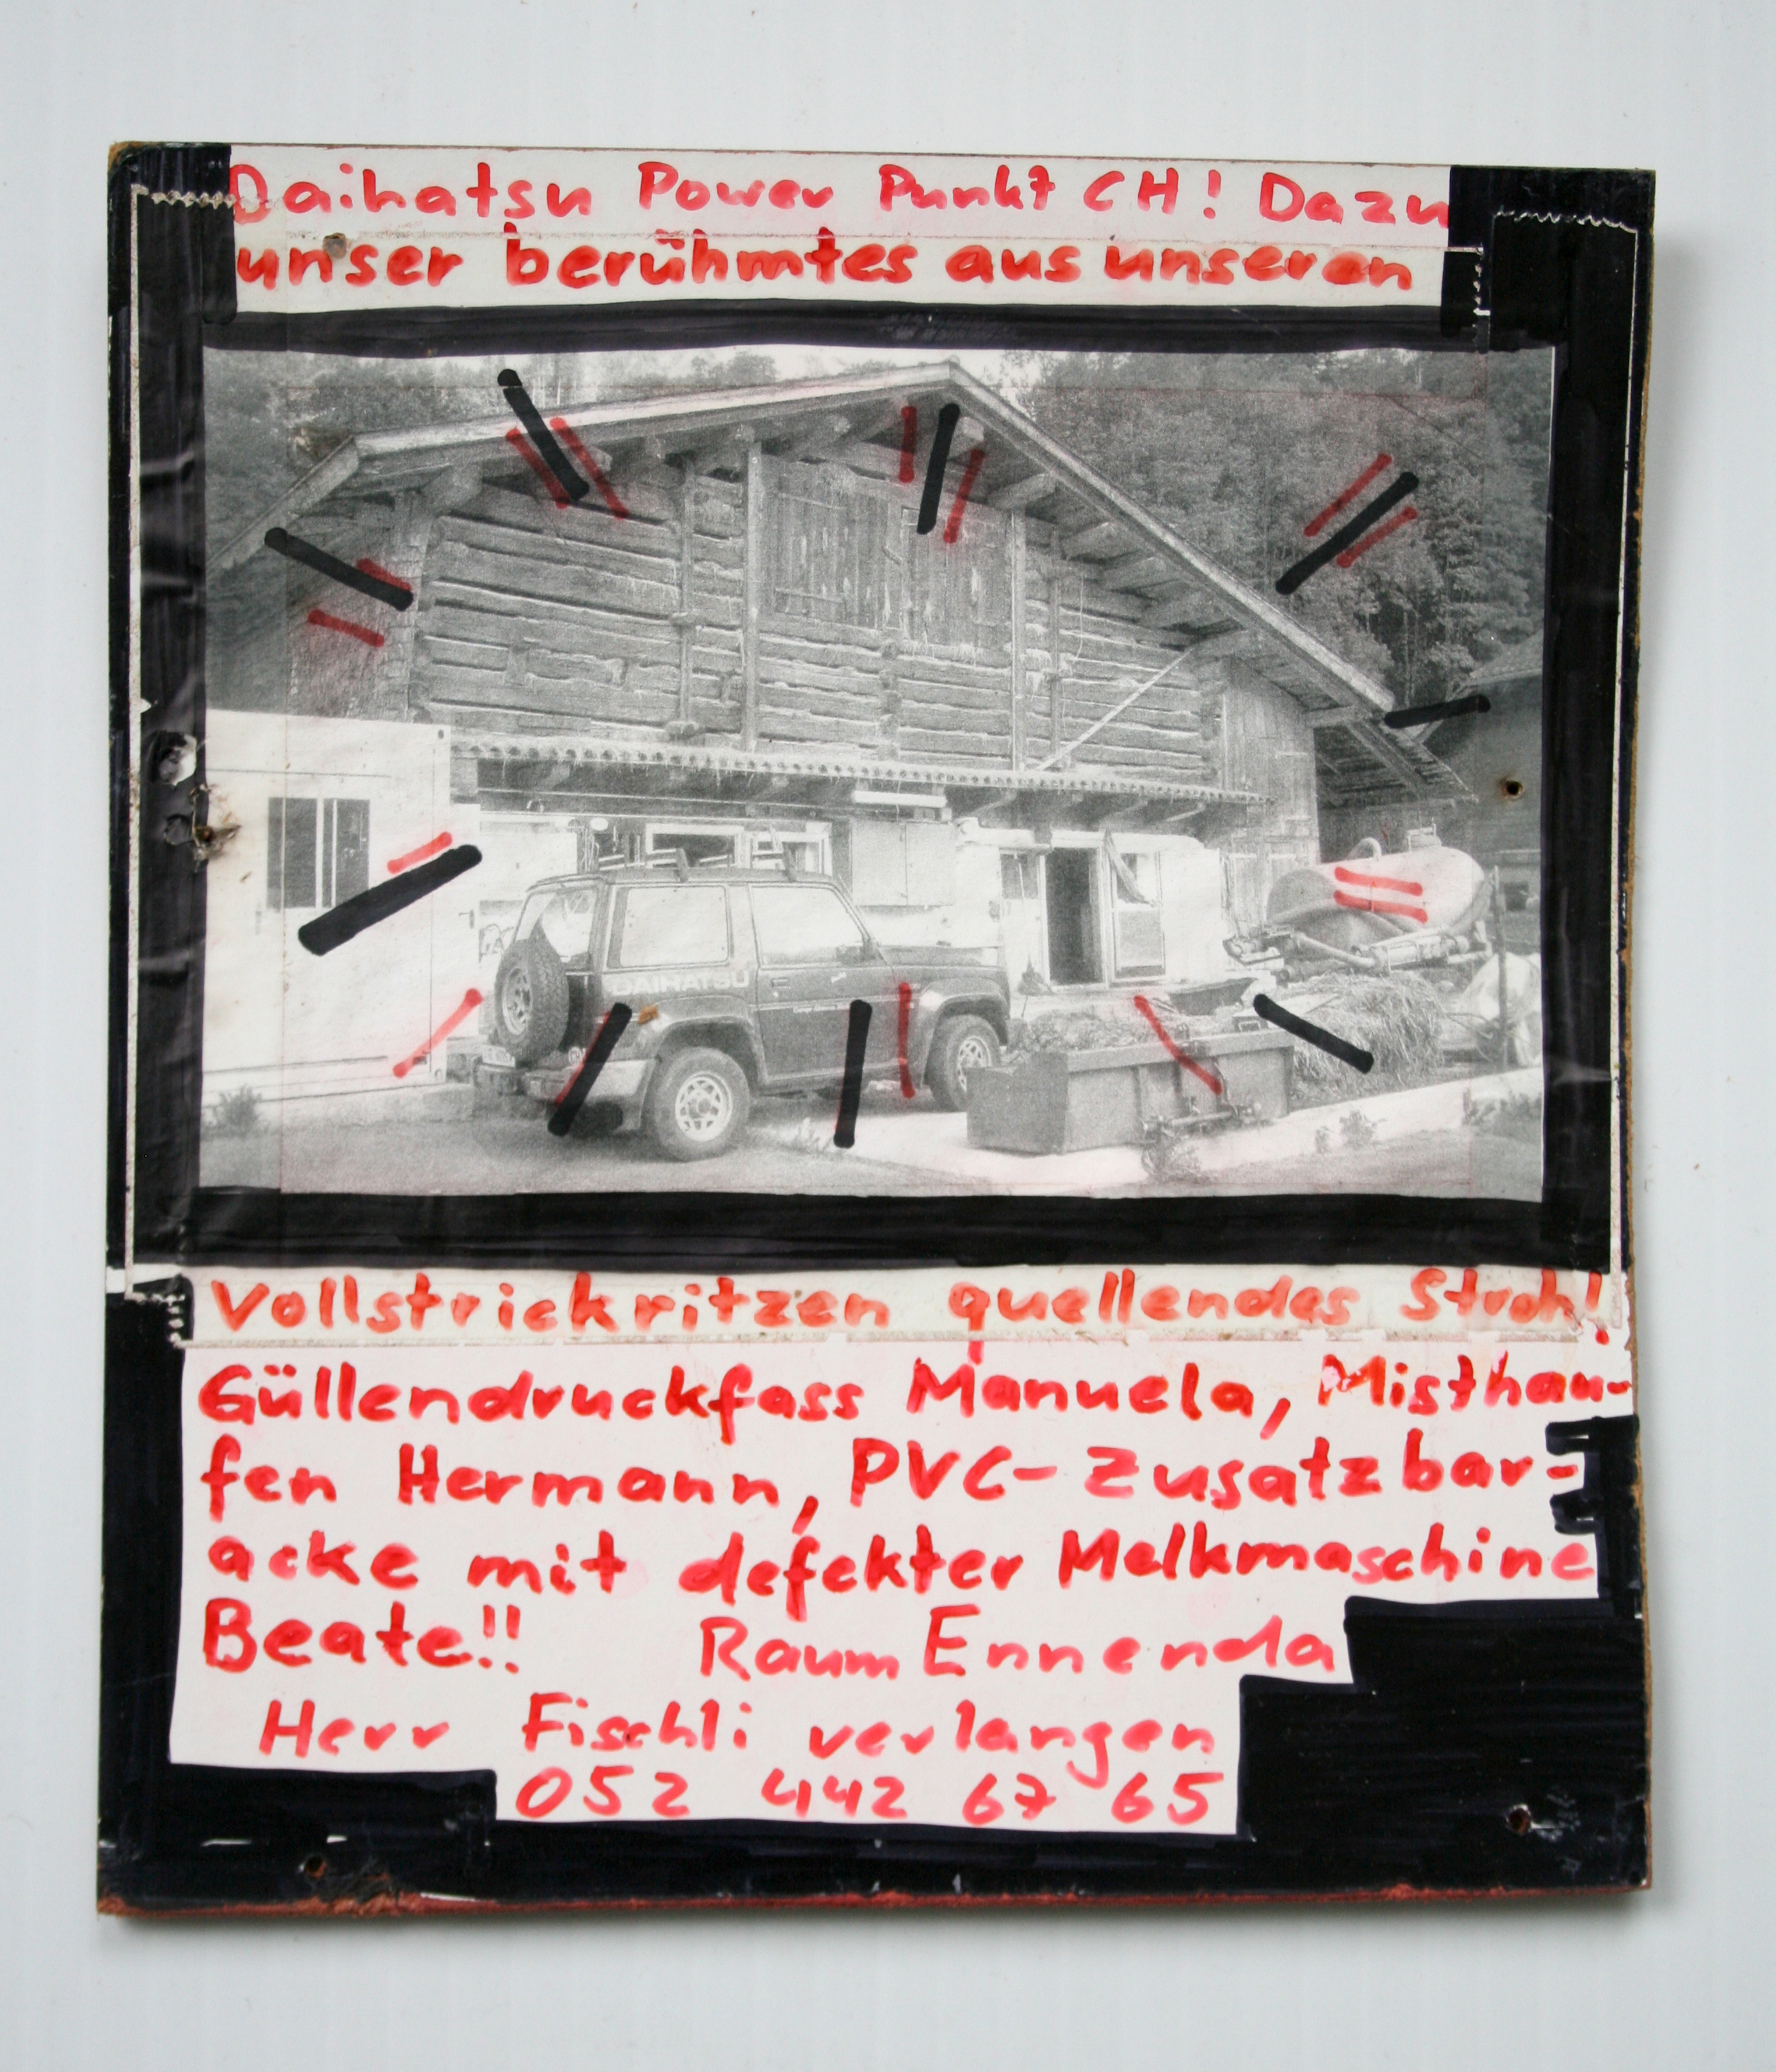 Daihatsu Power Punkt CH! Dazu
unser berühmtes aus unseren
DAIHATSU
Vollstrickritzen quellendes Stroh!
Güllendruckfass Manuela, Misthau-
fen Hermann, PVC-Zusatzbar-
acke mit defekter Melkmaschine
Beate!! Raum Ennenda
Herr Fischli verlangen
052 442 67 65